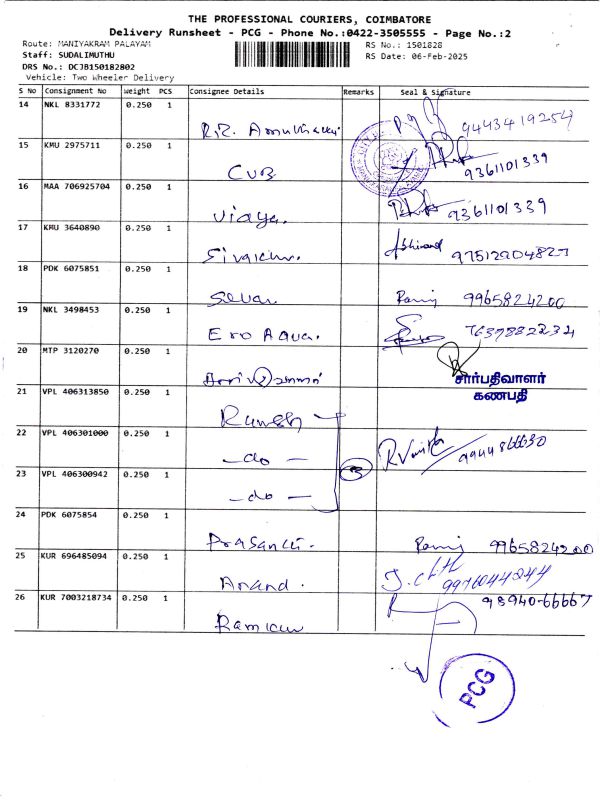 THE PROFESSIONAL COURIERS, COIMBATORE
Delivery Runsheet - PCG - Phone No.:0422-3505555 - Page No.:2
Route: MANIYAKRAM PALAYAM
RS No.: 1501828
Staff: SUDALIMUTHU
RS Date: 06-Feb-2025
DRS No.: DCJB150182802
Vehicle: Two Wheeler Delivery
S No Consignment No Weight PCS Consignee Details Remarks Seal & Signature
14 NKL 8331772 0.250 1 9443419254
15 KMU 2975711 0.250 1 CUB 9361101339
16 MAA 706925704 0.250 1 Vijaya. 9361101339
17 KMU 3640890 0.250 1 Sivakum. Abhinand 97512204827
18 PDK 6075851 0.250 1 Selvan. 9965824200
19 NKL 3498453 0.250 1 Ero Aqua. 7637882234
20 MTP 3120270 0.250 1 சார்பதிவாளர்
கணபதி
21 VPL 406313850 0.250 1 Ramesh
22 VPL 406301000 0.250 1 -do- 9444866630
23 VPL 406300942 0.250 1 -do- 3
24 PDK 6075854 0.250 1 Prasanth. 9965824200
25 KUR 696485094 0.250 1 Anand. 9976044244
26 KUR 7003218734 0.250 1 Ramkum 98940-66667
PCG